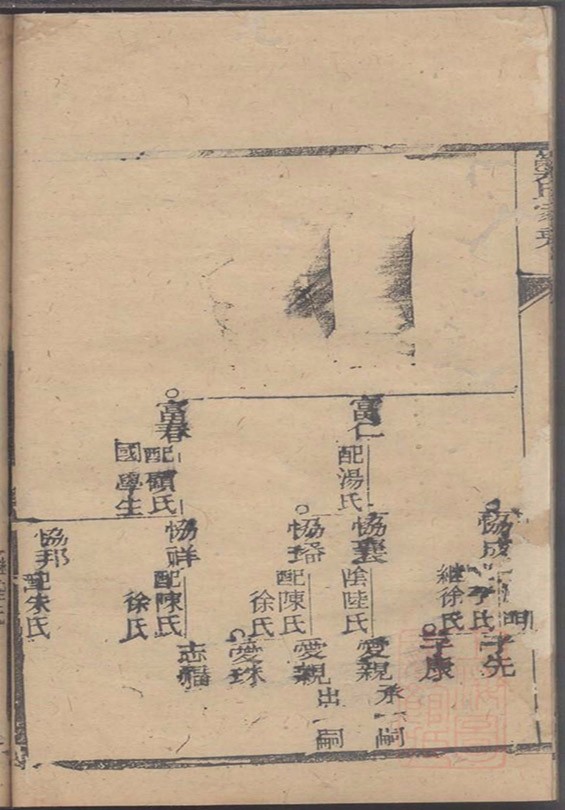 富仁
配湯氏
富春
配顧氏
國學生
協成
氏
繼徐氏
協襄
陸氏
協瑢
配陳氏
徐氏
協祥
配陳氏
徐氏
協邦
配朱氏
先
康
愛親
承嗣
愛親
出嗣
愛珠
志福